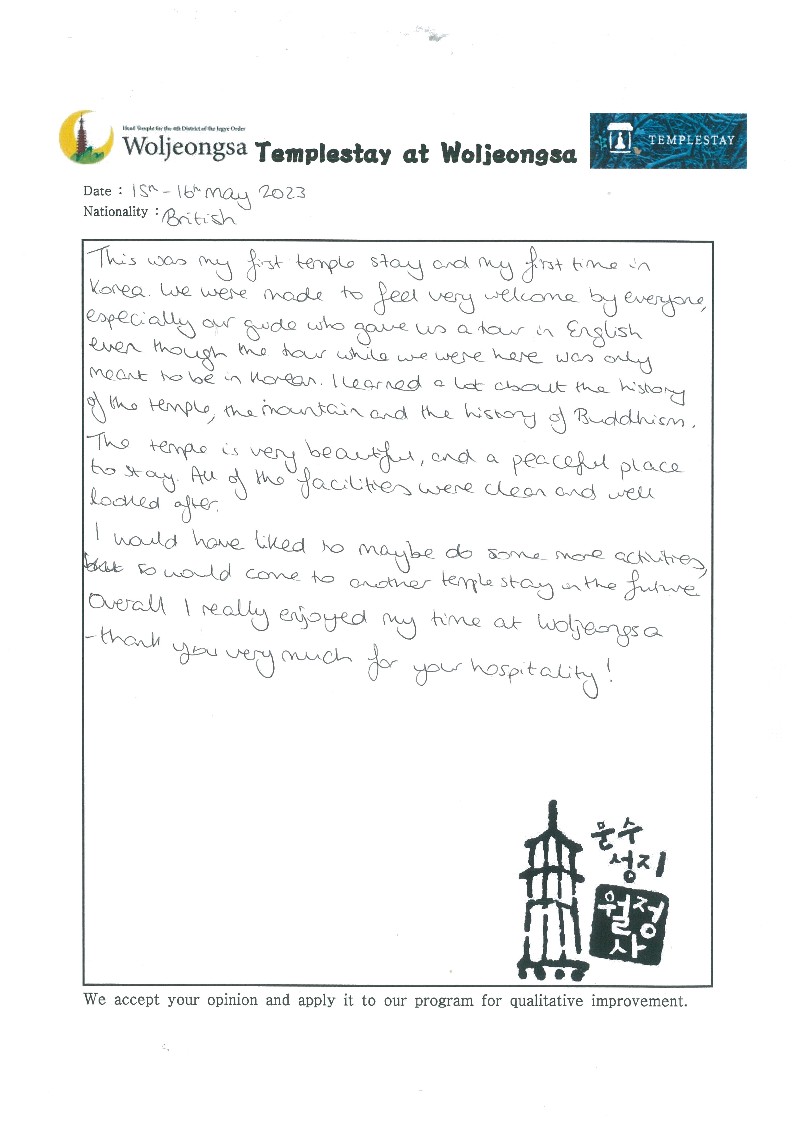 Head Temple for the 4th District of the Jogye Order
Woljeongsa Templestay at Woljeongsa
TEMPLESTAY
Date : 15th - 16th May 2023
Nationality : British
This was my first temple stay and my first time in
Korea. We were made to feel very welcome by everyone,
especially our guide who gave us a tour in English
even though the tour while we were here was only
meant to be in Korean. I learned a lot about the history
of the temple, the mountain and the history of Buddhism.
The temple is very beautiful, and a peaceful place
to stay. All of the facilities were clean and well
looked after.
I would have liked to maybe do some more activities,
so would come to another temple stay in the future.
Overall I really enjoyed my time at Woljeongsa
- thank you very much for your hospitality!
문수
성지
월정
사
We accept your opinion and apply it to our program for qualitative improvement.